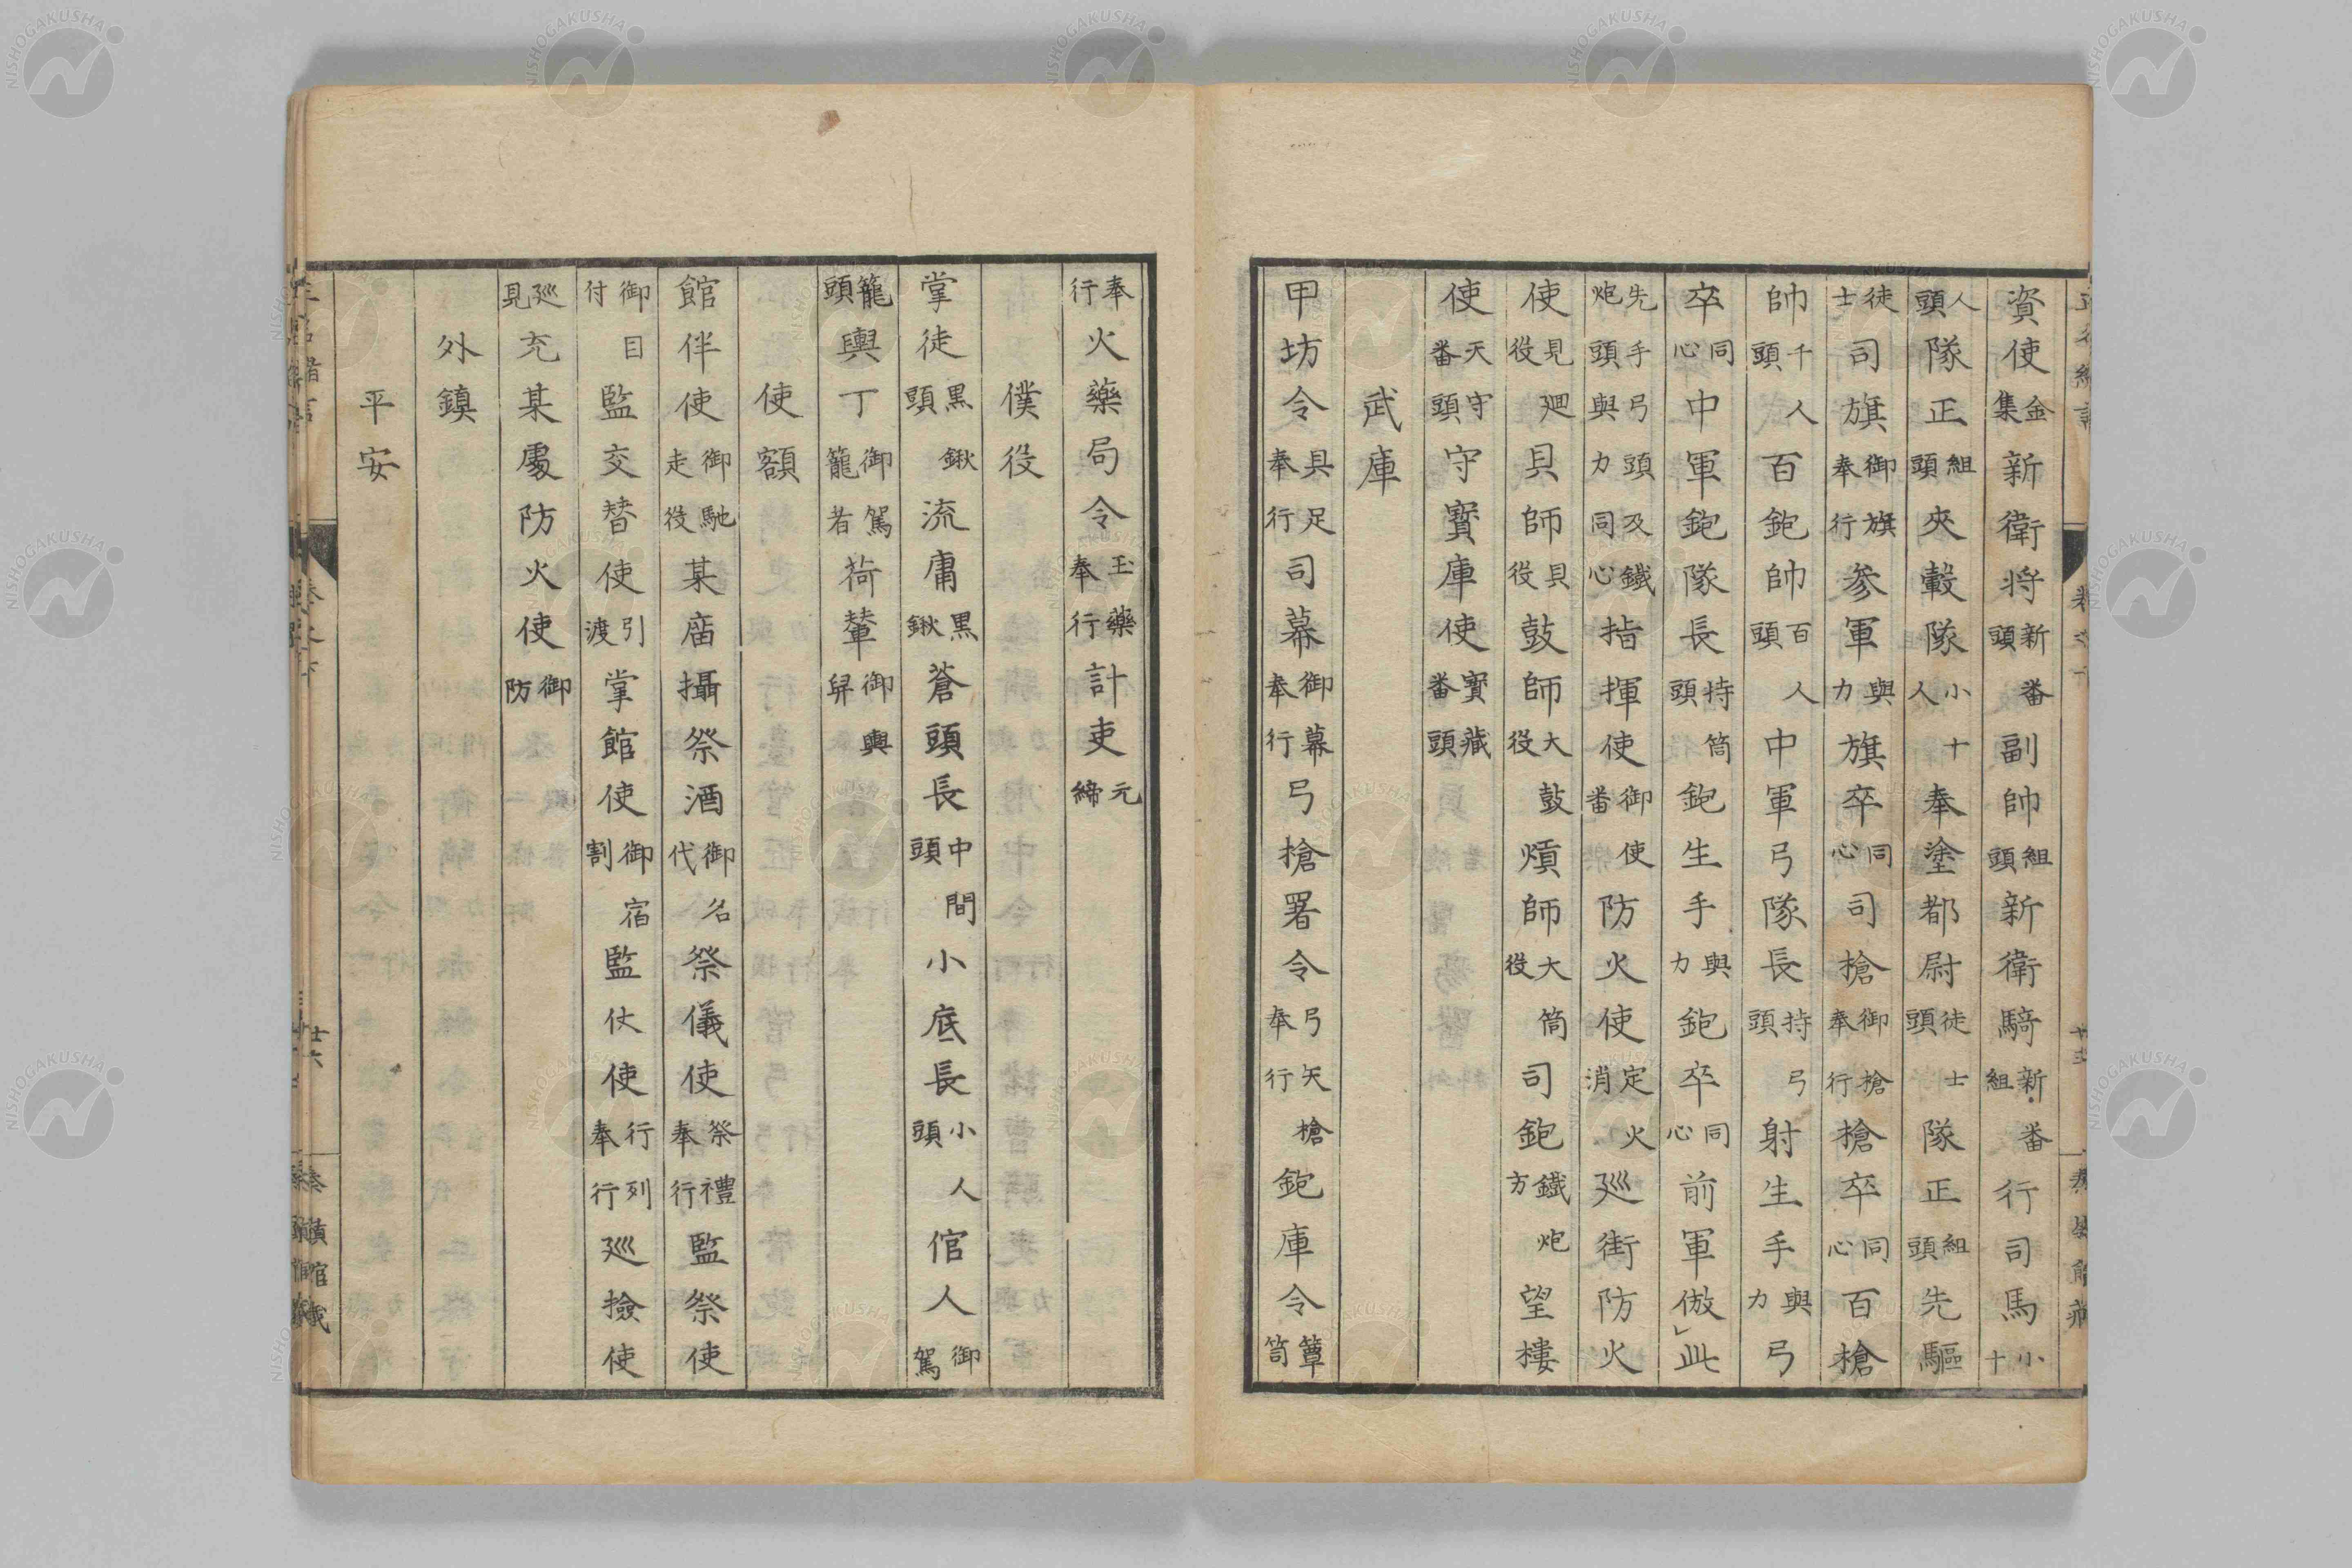 資使金集新衛将新番頭副帥組頭新衛騎新番組行司馬小十
人頭隊正組頭夾轂隊小十人奉塗都尉徒士頭隊正組頭先驅
徒士司旗御旗奉行参軍與力旗卒同心司槍御槍奉行槍卒同心百槍
帥千人頭百鉋帥百人頭中軍弓隊長持弓頭射生手與力弓
卒同心中軍鉋隊長持筒頭鉋生手與力鉋卒同心前軍倣此
先手弓頭及鐵炮頭與力同心指揮使御使番防火使定火消巡街防火
使見廻役貝師貝役鼓師大鼓役熕師大筒役司鉋鐵炮方望樓
使天守番頭守寳庫使寳藏番頭
武庫
甲坊令具足奉行司幕御幕奉行弓槍署令弓矢槍奉行鉋庫令簞笥
奉行火藥局令玉藥奉行計吏元締
僕役
掌徒黒鍬頭流庸黒鍬蒼頭長中間頭小底長小人頭倌人御駕
籠頭輿丁御駕籠者荷輦御輿舁
使額
館伴使御馳走役某庿攝祭酒御名代祭儀使祭禮奉行監祭使
御目付監交替使引渡掌館使御宿割監仗使行列奉行巡撿使
巡見充某處防火使御防
外鎮
平安
NISHOGAKUSHA